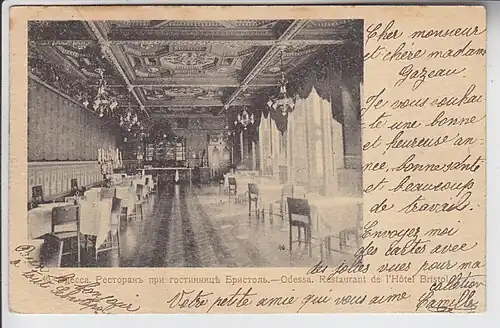 Cher monsieur
et chère madame
Gazeau.
Je vous souhai
te une bonne
et heureuse an-
née, bonne santé
et beaucoup
de travail.
Envoyez moi
des cartes avec
des jolies vues pour ma
collection
Votre petite amie qui vous aime Camille
Одесса. Ресторанъ при гостинницѣ Бристоль.—Odessa. Restaurant de l'Hôtel Bristol.